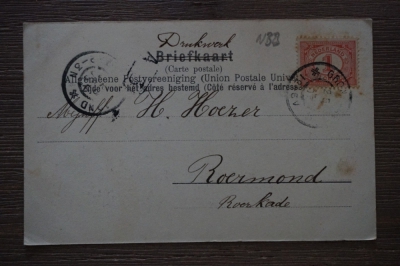 Drukwerk
N88
Briefkaart
(Carte postale)
Algemeene Postvereeniging (Union Postale Univers
Zijde voor het adres bestemd (Côté réservé à l'adresse
H. Hoezer
Roermond
Roerkade
1